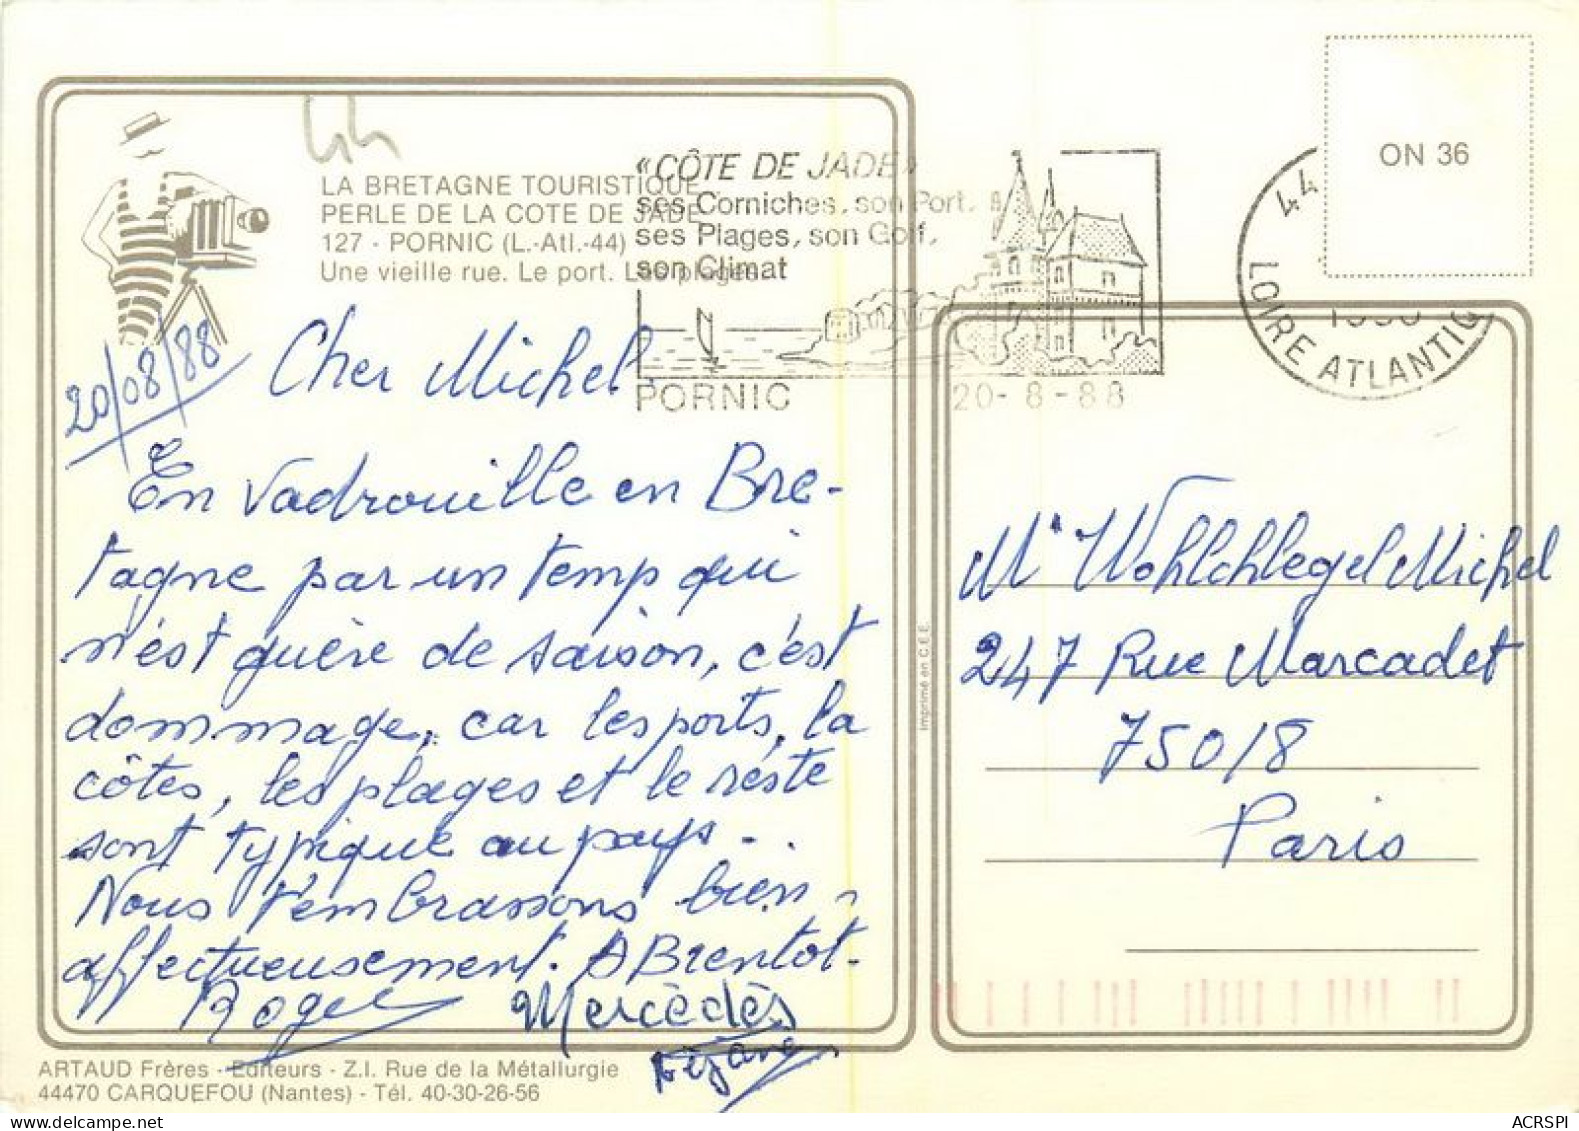 LA BRETAGNE TOURISTIQUE
PERLE DE LA COTE DE JADE
127 - PORNIC (L.-Atl.-44)
Une vieille rue. Le port. Les plages.
«CÔTE DE JADE»
ses Corniches, son Port,
ses Plages, son Golf,
son Climat
PORNIC
20-8-88
44
LOIRE ATLANTIQ
ON 36
20/08/88
Cher Michel,
En vadrouille en Bre-
tagne par un temp qui
n'est guère de saison, c'est
dommage, car les ports, la
côtes, les plages et le reste
sont typique au pays...
Nous t'embrassons bien
affectueusement. A Brentot.
Roger Mercédès
Mr Wohlchlegel Michel
247 Rue Marcadet
75018
Paris
Imprimé en C.E.E.
ARTAUD Frères - Editeurs - Z.I. Rue de la Métallurgie
44470 CARQUEFOU (Nantes) - Tél. 40-30-26-56
ACRSPI